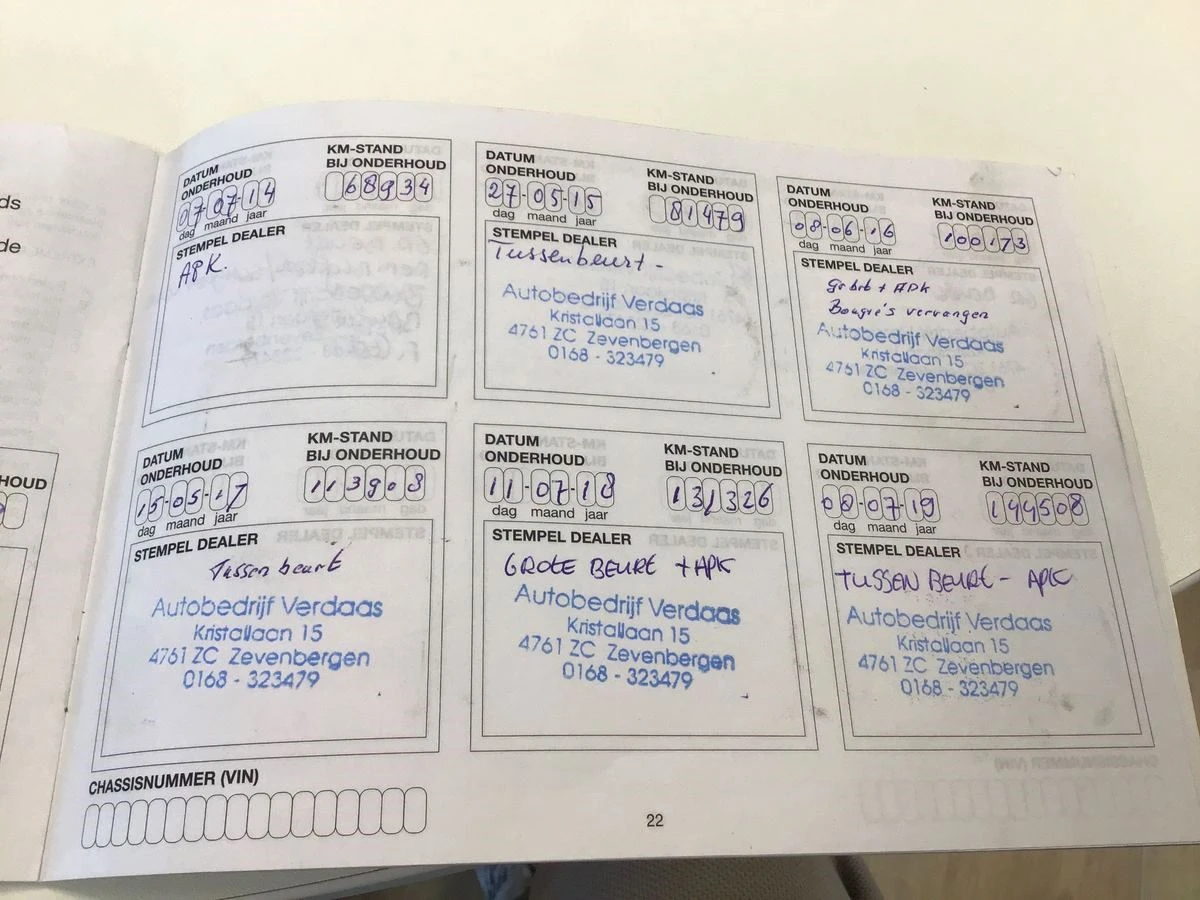 ds
de
HOUD
DATUM
ONDERHOUD
07-07-14
dag maand jaar
KM-STAND
BIJ ONDERHOUD
68934
STEMPEL DEALER
APK.
DATUM
ONDERHOUD
27-05-15
dag maand jaar
KM-STAND
BIJ ONDERHOUD
81479
STEMPEL DEALER
Tussenbeurt -
Autobedrijf Verdaas
Kristallaan 15
4761 ZC Zevenbergen
0168 - 323479
DATUM
ONDERHOUD
08-06-16
dag maand jaar
KM-STAND
BIJ ONDERHOUD
100173
STEMPEL DEALER
Gr brt + APK
Bougie's vervangen
Autobedrijf Verdaas
Kristallaan 15
4761 ZC Zevenbergen
0168 - 323479
DATUM
ONDERHOUD
15-05-17
dag maand jaar
KM-STAND
BIJ ONDERHOUD
113908
STEMPEL DEALER
Tussenbeurt
Autobedrijf Verdaas
Kristallaan 15
4761 ZC Zevenbergen
0168 - 323479
DATUM
ONDERHOUD
11-07-18
dag maand jaar
KM-STAND
BIJ ONDERHOUD
131326
STEMPEL DEALER
GROTE BEURT + APK
Autobedrijf Verdaas
Kristallaan 15
4761 ZC Zevenbergen
0168 - 323479
DATUM
ONDERHOUD
08-07-19
dag maand jaar
KM-STAND
BIJ ONDERHOUD
144508
STEMPEL DEALER
TUSSEN BEURT - APK
Autobedrijf Verdaas
Kristallaan 15
4761 ZC Zevenbergen
0168 - 323479
CHASSISNUMMER (VIN)
22